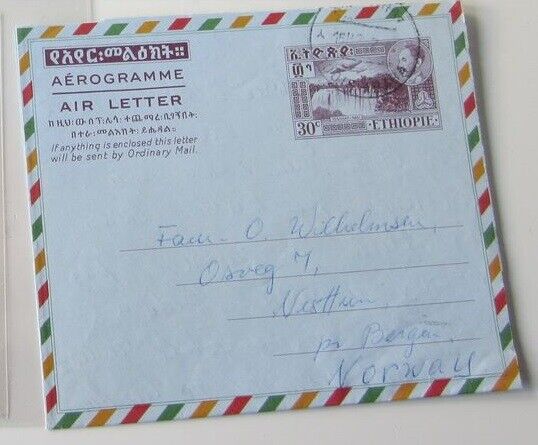 የአየር፡መልእክት።
AÉROGRAMME
AIR LETTER
ከዚህ፡ውስጥ፡ሌላ፡ተጨማሪ፡ቢገኝበት፡
በተራ፡መልእክት፡ይሔዳል።
If anything is enclosed this letter
will be sent by Ordinary Mail.
ኢትዮጵያ፡
፴ሳ
30c ·ETHIOPIE·
Fam. O. Wilhelmsen,
Osveg 7,
Nesttun
pr Bergen
Norway